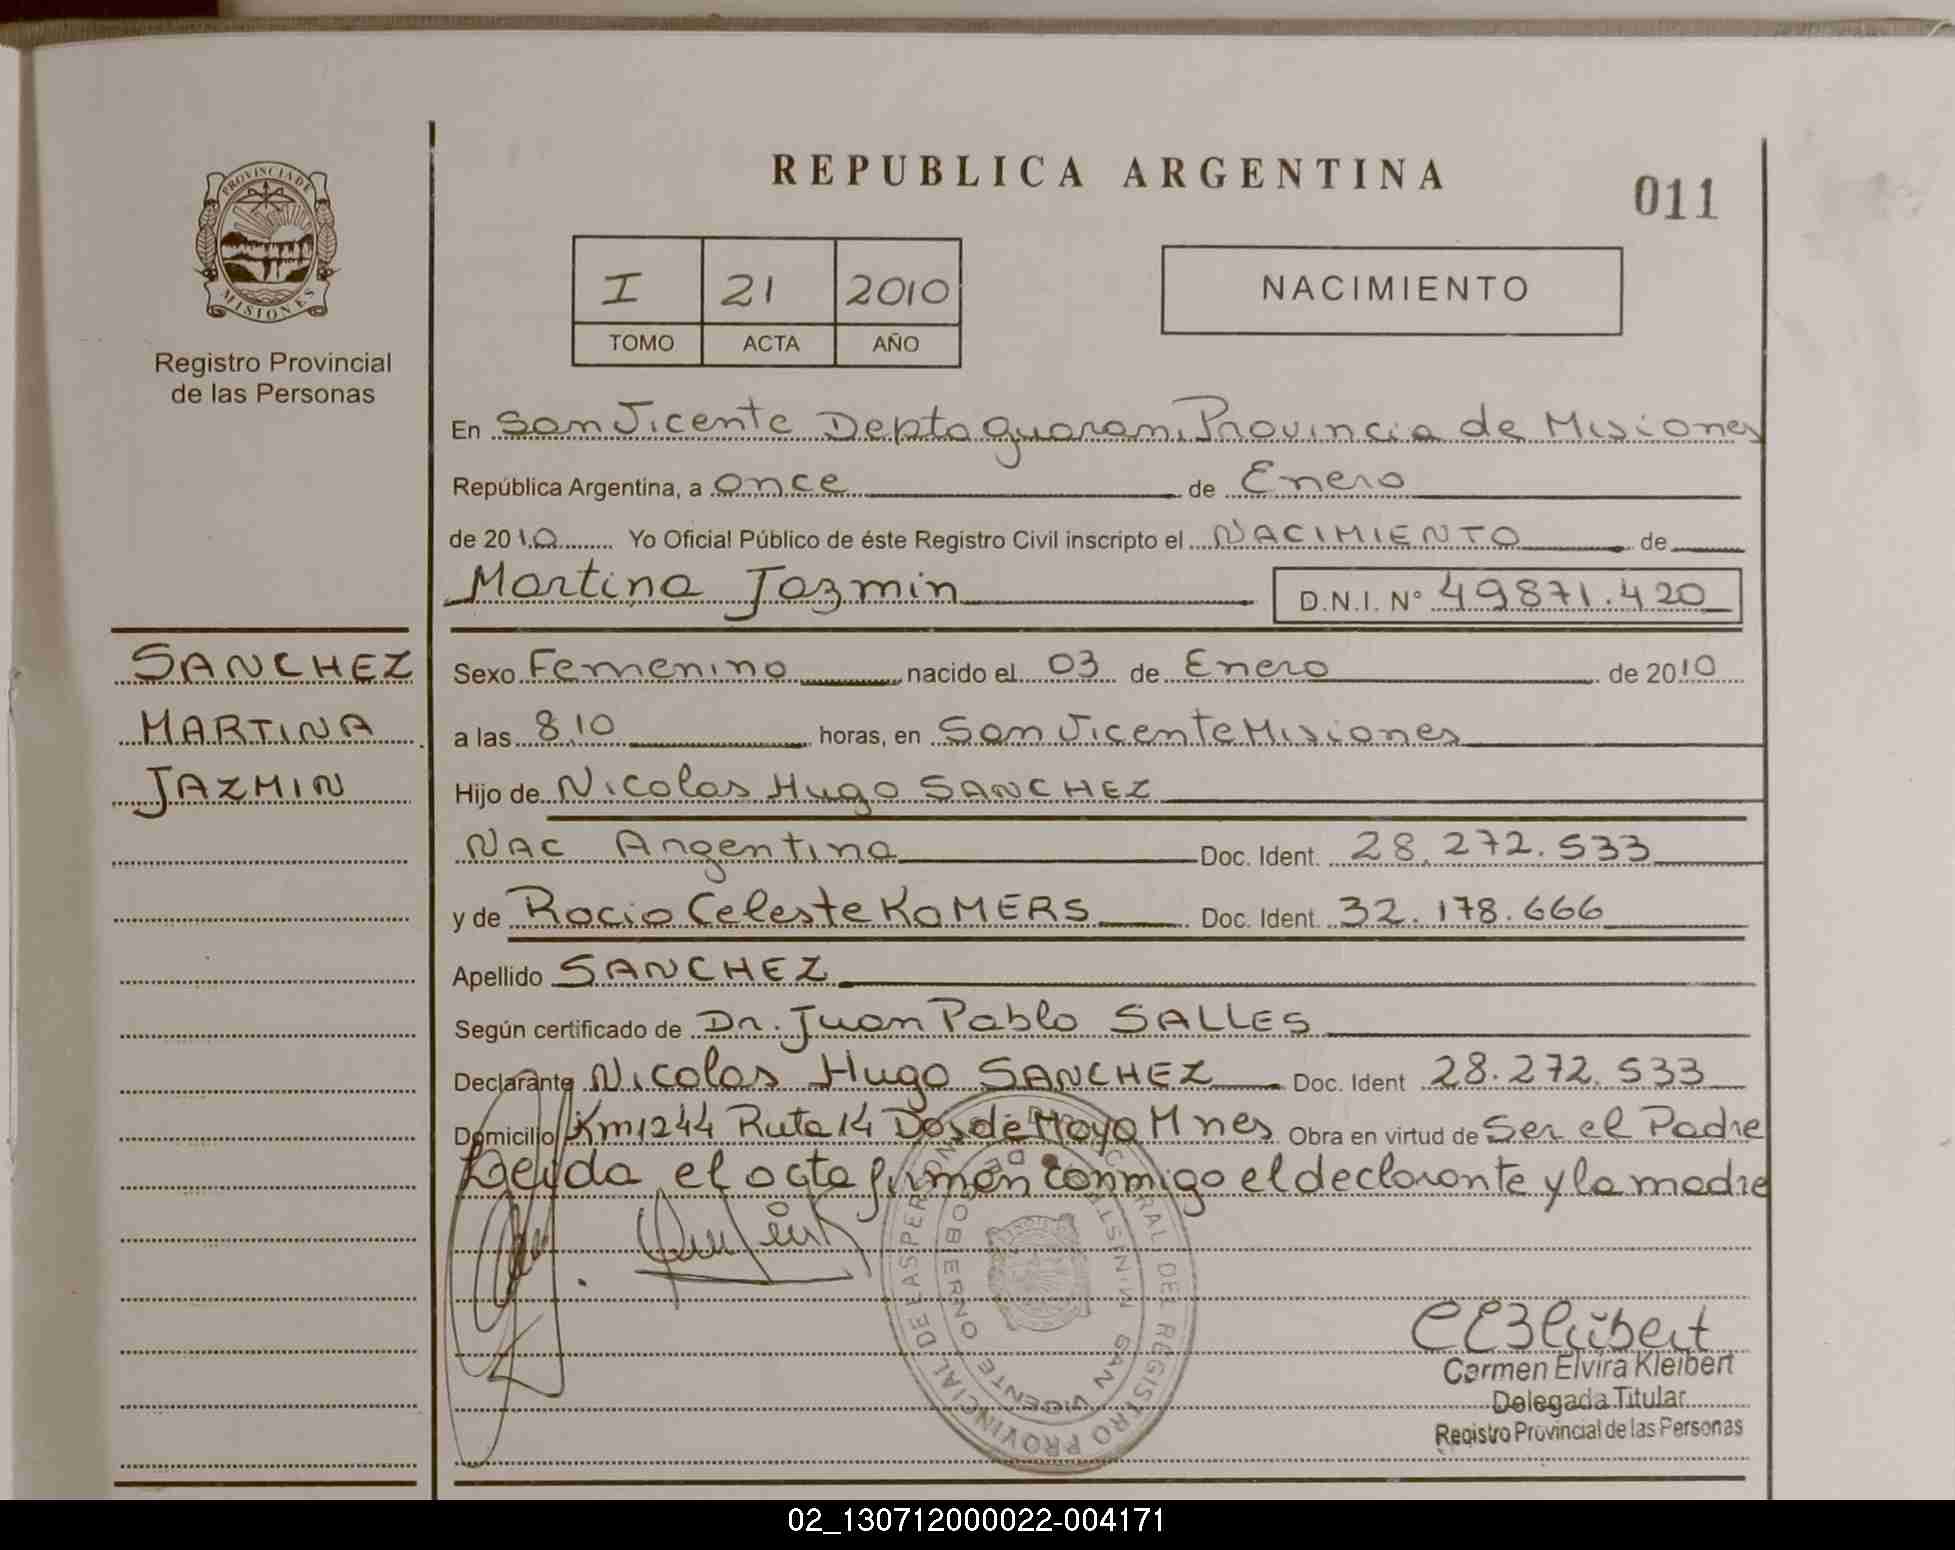 REPUBLICA ARGENTINA
011
PROVINCIA DE
MISIONES
Registro Provincial
de las Personas
I 21 2010
TOMO ACTA AÑO
NACIMIENTO
En San Vicente Depto Guarani Provincia de Misiones
República Argentina, a once de Enero
de 2010 Yo Oficial Público de éste Registro Civil inscripto el NACIMIENTO de
Martina Jazmin D.N.I. N° 49871.420
SANCHEZ
MARTINA
JAZMIN
Sexo Femenino nacido el 03 de Enero de 2010
a las 8,10 horas, en San Vicente Misiones
Hijo de Nicolas Hugo SANCHEZ
NAC Argentina Doc. Ident. 28.272.533
y de Rocio Celeste KOMERS Doc. Ident. 32.178.666
Apellido SANCHEZ
Según certificado de Dr. Juan Pablo SALLES
Declarante Nicolas Hugo SANCHEZ Doc. Ident 28.272.533
Domicilio Km1244 Ruta 14 Dos de Mayo Mnes Obra en virtud de Ser el Padre
Leida el acta firman conmigo el declarante y la madre
REGISTRO PROVINCIAL DE LAS PERSONAS
SAN VICENTE
Carmen Elvira Kleibert
Delegada Titular
Registro Provincial de las Personas
02_130712000022-004171